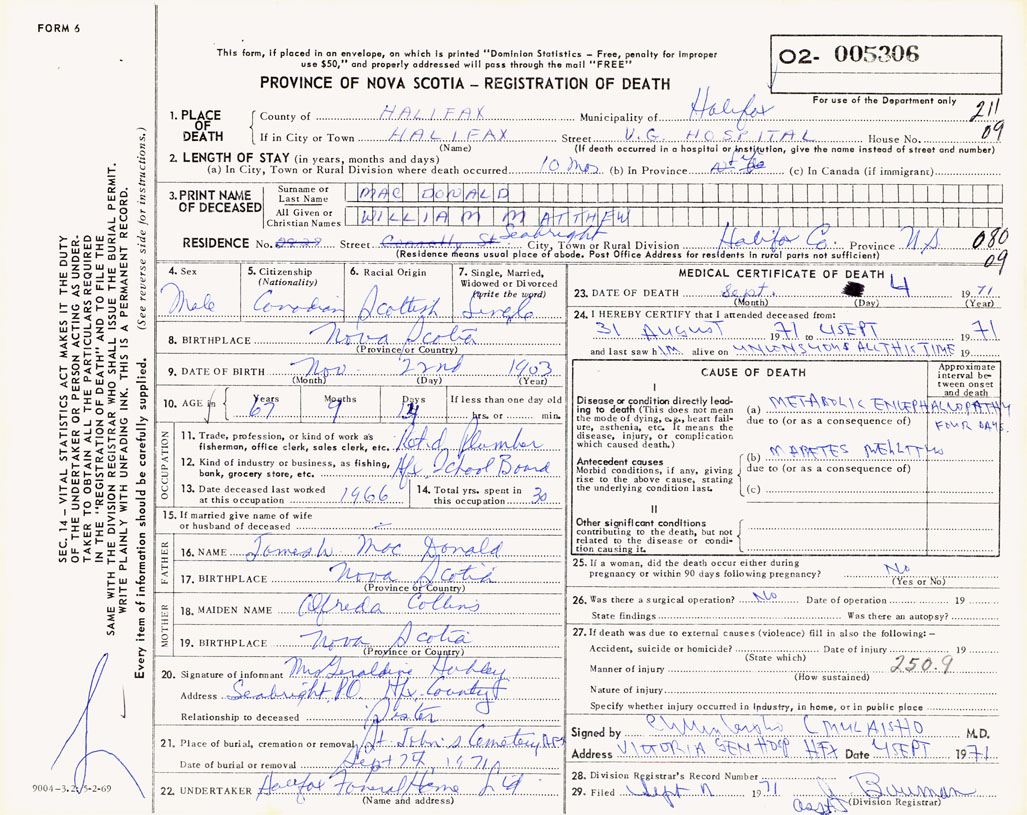 FORM 6
This form, if placed in an envelope, on which is printed "Dominion Statistics – Free, penalty for improper
use $50," and properly addressed will pass through the mail "FREE"
O2- 005306
PROVINCE OF NOVA SCOTIA – REGISTRATION OF DEATH
For use of the Department only
1. PLACE OF DEATH
County of HALIFAX Municipality of Halifax 211
If in City or Town HALIFAX Street V.G. HOSPITAL House No. 09
(Name) (If death occurred in a hospital or institution, give the name instead of street and number)
2. LENGTH OF STAY (in years, months and days)
(a) In City, Town or Rural Division where death occurred 10 Mos (b) In Province (c) In Canada (if immigrant)
3. PRINT NAME OF DECEASED
Surname or Last Name MAC DONALD
All Given or Christian Names WILLIAM MATTHEW
RESIDENCE No. Street Seabright City, Town or Rural Division Halifax Co. Province N.S. 080
(Residence means usual place of abode. Post Office Address for residents in rural parts not sufficient) 09
4. Sex Male
5. Citizenship (Nationality) Canadian
6. Racial Origin Scottish
7. Single, Married, Widowed or Divorced (write the word) Single
8. BIRTHPLACE Nova Scotia
(Province or Country)
9. DATE OF BIRTH Nov. 22nd 1903
(Month) (Day) (Year)
10. AGE Years 67 Months 9 Days If less than one day old hrs. or min.
OCCUPATION
11. Trade, profession, or kind of work as fisherman, office clerk, sales clerk, etc. Ret'd Plumber
12. Kind of industry or business, as fishing, bank, grocery store, etc. Hfx School Board
13. Date deceased last worked at this occupation 1966
14. Total yrs. spent in this occupation 30
15. If married give name of wife or husband of deceased
FATHER
16. NAME James W Mac Donald
17. BIRTHPLACE Nova Scotia
(Province or Country)
MOTHER
18. MAIDEN NAME Alfreda Collins
19. BIRTHPLACE Nova Scotia
(Province or Country)
20. Signature of informant Mrs Geraldine Hubley
Address Seabright P.O. Hfx County
Relationship to deceased Sister
21. Place of burial, cremation or removal St John's Cemetery
Date of burial or removal Sept 7th, 1971
22. UNDERTAKER Halifax Funeral Home Ltd
(Name and address)
MEDICAL CERTIFICATE OF DEATH
23. DATE OF DEATH Sept. 4 1971
(Month) (Day) (Year)
24. I HEREBY CERTIFY that I attended deceased from:
31 AUGUST 1971 to 4 SEPT 1971
and last saw him alive on UNCONSCIOUS ALL THIS TIME 19
CAUSE OF DEATH
Approximate interval between onset and death
I
Disease or condition directly leading to death (This does not mean the mode of dying, e.g., heart failure, asthenia, etc. It means the disease, injury, or complication which caused death.)
(a) METABOLIC ENCEPHALLOPATHY
due to (or as a consequence of) FOUR DAYS.
Antecedent causes
Morbid conditions, if any, giving rise to the above cause, stating the underlying condition last.
(b) DIABETES MELLITUS
due to (or as a consequence of)
(c)
II
Other significant conditions contributing to the death, but not related to the disease or condition causing it.
25. If a woman, did the death occur either during pregnancy or within 90 days following pregnancy? No
(Yes or No)
26. Was there a surgical operation? No Date of operation 19
State findings Was there an autopsy?
27. If death was due to external causes (violence) fill in also the following:–
Accident, suicide or homicide? Date of injury 19
(State which)
Manner of injury 250.9
(How sustained)
Nature of injury
Specify whether injury occurred in industry, in home, or in public place
Signed by M.D.
Address VICTORIA GEN HOSP HFX Date 4 SEPT 1971
28. Division Registrar's Record Number
29. Filed Sept 1971
(Division Registrar)
SEC. 14 – VITAL STATISTICS ACT MAKES IT THE DUTY
OF THE UNDERTAKER OR PERSON ACTING AS UNDERTAKER TO OBTAIN ALL THE PARTICULARS REQUIRED
IN THE "REGISTRATION OF DEATH" AND TO FILE THE
SAME WITH THE DIVISION REGISTRAR WHO SHALL ISSUE THE BURIAL PERMIT.
WRITE PLAINLY WITH UNFADING INK. THIS IS A PERMANENT RECORD.
Every item of information should be carefully supplied. (See reverse side for instructions.)
9004-3.2: 5-2-69